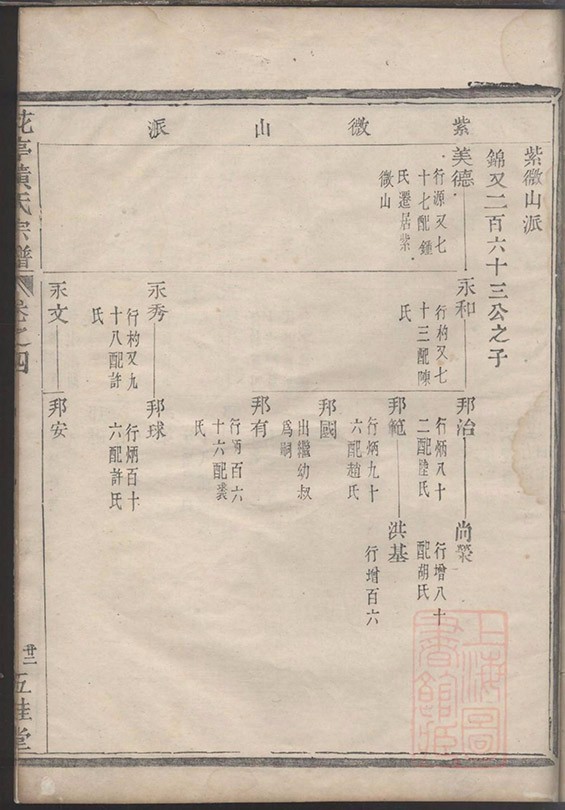 紫微山派
紫微山派
錦又二百六十三公之子
美德
行源又七
十七配鍾
氏遷居紫
微山
永和
行杓又七
十三配陳
氏
邦治
行炳八十
二配陸氏
尚𤇍
行增八十
配胡氏
邦範
行炳九十
六配趙氏
洪基
行增百六
邦國
出繼幼叔
爲嗣
邦有
行炳百六
十六配裘
氏
永秀
行杓又九
十八配許
氏
邦球
行炳百十
六配許氏
永文
邦安
花亭黃氏宗譜
卷之四
廿二
五桂堂
上海圖書館藏